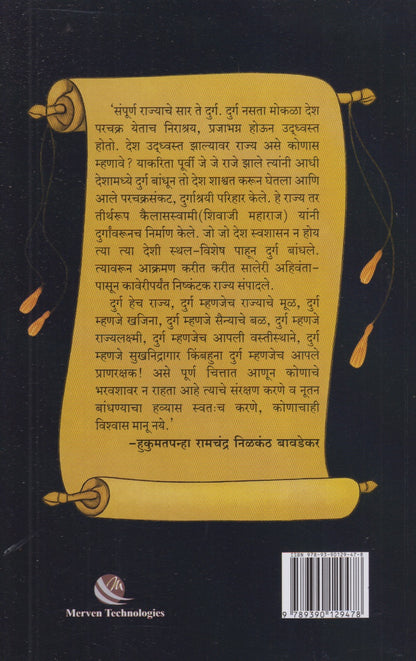 'संपूर्ण राज्याचे सार ते दुर्ग. दुर्ग नसता मोकळा देश
परचक्र येताच निराश्रय, प्रजाभग्न होऊन उद्ध्वस्त
होतो. देश उद्ध्वस्त झाल्यावर राज्य असे कोणास
म्हणावे ? याकरिता पूर्वी जे जे राजे झाले त्यांनी आधी
देशामध्ये दुर्ग बांधून तो देश शाश्वत करून घेतला आणि
आले परचक्रसंकट, दुर्गाश्रयी परिहार केले. हे राज्य तर
तीर्थरूप कैलासस्वामी(शिवाजी महाराज) यांनी
दुर्गांवरूनच निर्माण केले. जो जो देश स्वशासन न होय
त्या त्या देशी स्थल-विशेष पाहून दुर्ग बांधले.
त्यावरून आक्रमण करीत करीत सालेरी अहिवंता-
पासून कावेरीपर्यंत निष्कंटक राज्य संपादले.
दुर्ग हेच राज्य, दुर्ग म्हणजेच राज्याचे मूळ, दुर्ग
म्हणजे खजिना, दुर्ग म्हणजे सैन्याचे बळ, दुर्ग म्हणजे
राज्यलक्ष्मी, दुर्ग म्हणजेच आपली वस्तीस्थाने, दुर्ग
म्हणजे सुखनिद्रागार किंबहुना दुर्ग म्हणजेच आपले
प्राणरक्षक! असे पूर्ण चित्तात आणून कोणाचे
भरवशावर न राहता आहे त्याचे संरक्षण करणे व नूतन
बांधण्याचा हव्यास स्वतःच करणे, कोणाचाही
विश्वास मानू नये.'
-हुकुमतपन्हा रामचंद्र निळकंठ बावडेकर
ISBN 978-93-90129-47-8
9 789390 129478
Merven Technologies